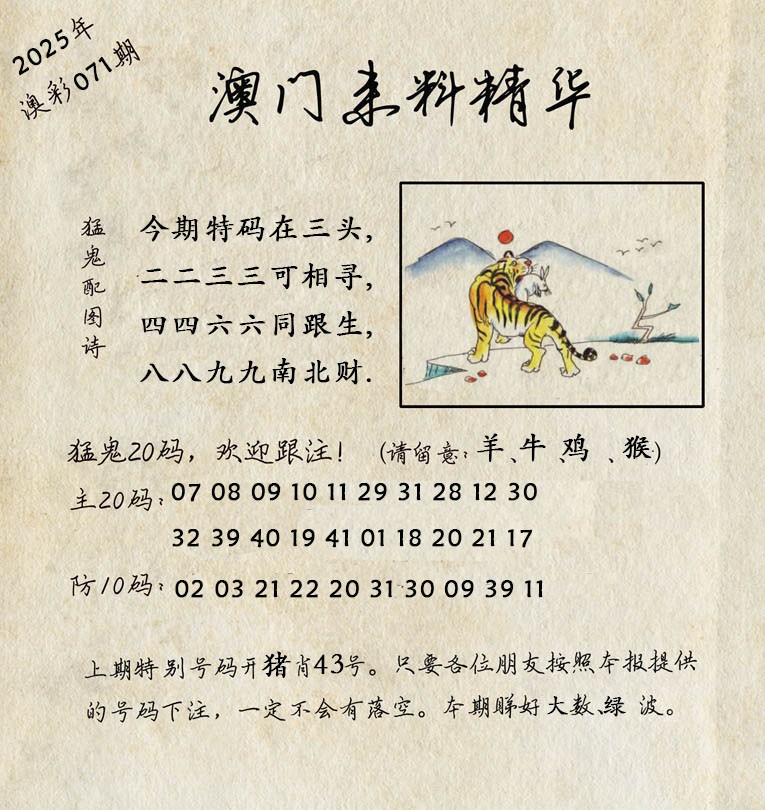 2025年
澳彩071期
澳门来料精华
猛鬼配图诗
今期特码在三头,
二二三三可相寻,
四四六六同跟生,
八八九九南北财.
猛鬼20码，欢迎跟注！（请留意：羊、牛、鸡、猴）
主20码：07 08 09 10 11 29 31 28 12 30
32 39 40 19 41 01 18 20 21 17
防10码：02 03 21 22 20 31 30 09 39 11
上期特别号码开猪肖43号。只要各位朋友按照本报提供
的号码下注，一定不会有落空。本期睇好大数、绿 波。